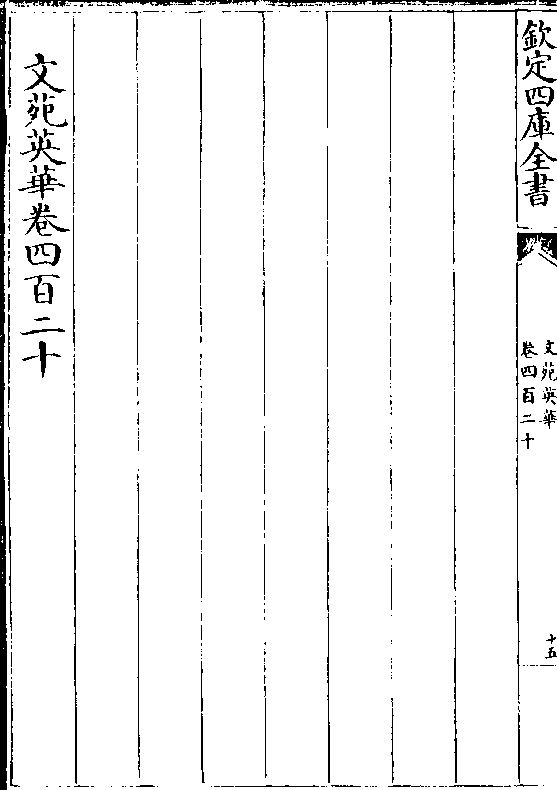 欽定四庫全書
文苑英華
卷四百二十
十五
文苑英華卷四百二十